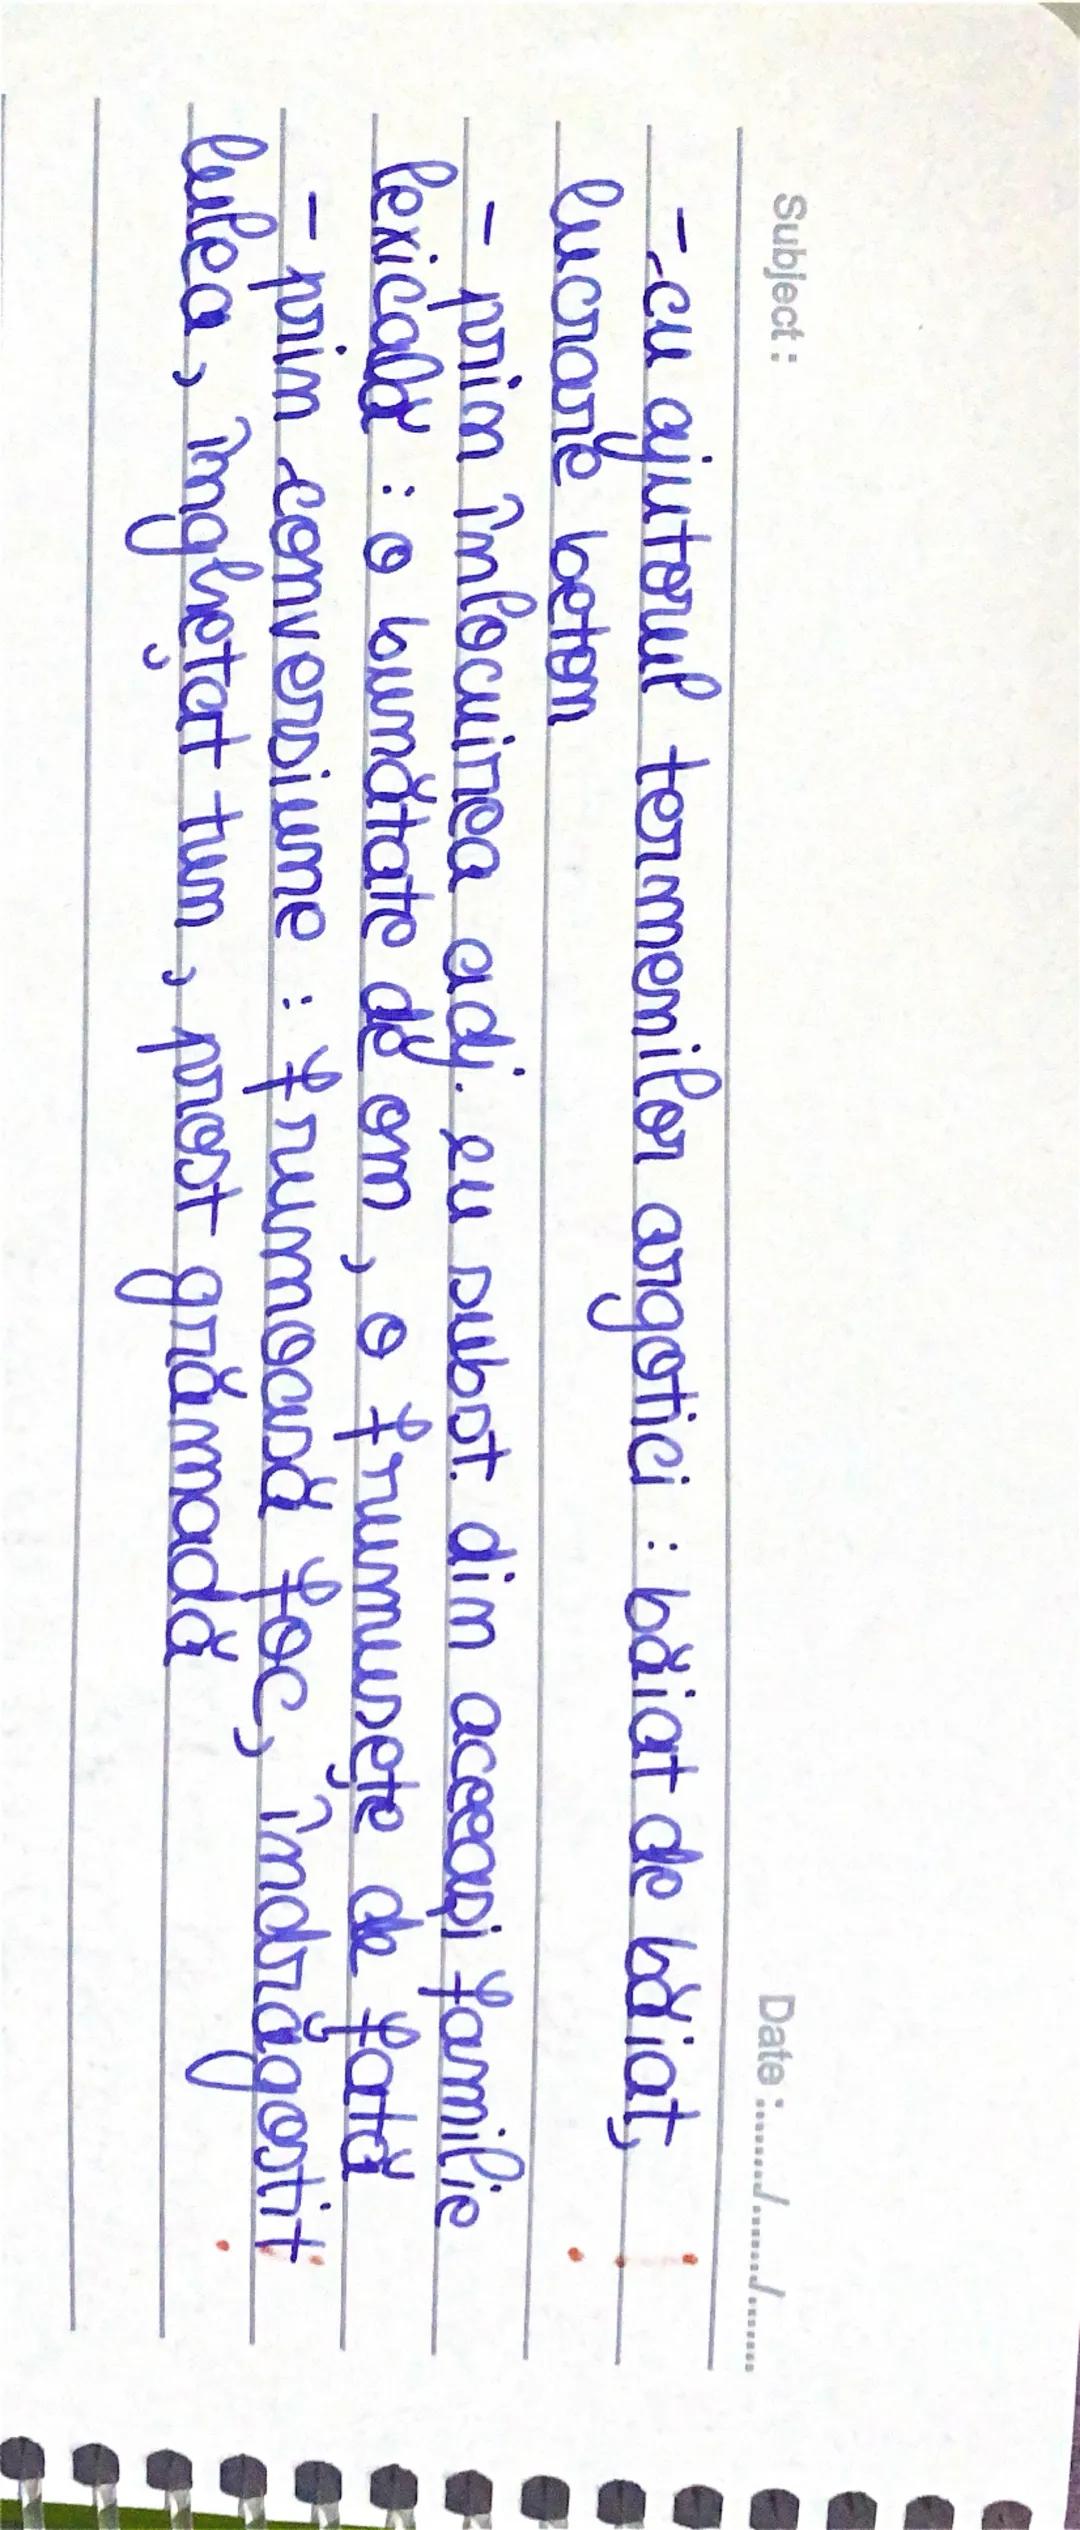 Subject : Date :......./......./.......
- cu ajutorul termenilor argotici : băiat de băiat,
lucrare beton
- prin înlocuirea adj. cu subst. din aceeași familie
lexicală : o bunătate de om , o frumusețe de fată
- prin conversiune : frumoasă foc, îndrăgostit
lulea , înghețat tun , prost grămadă